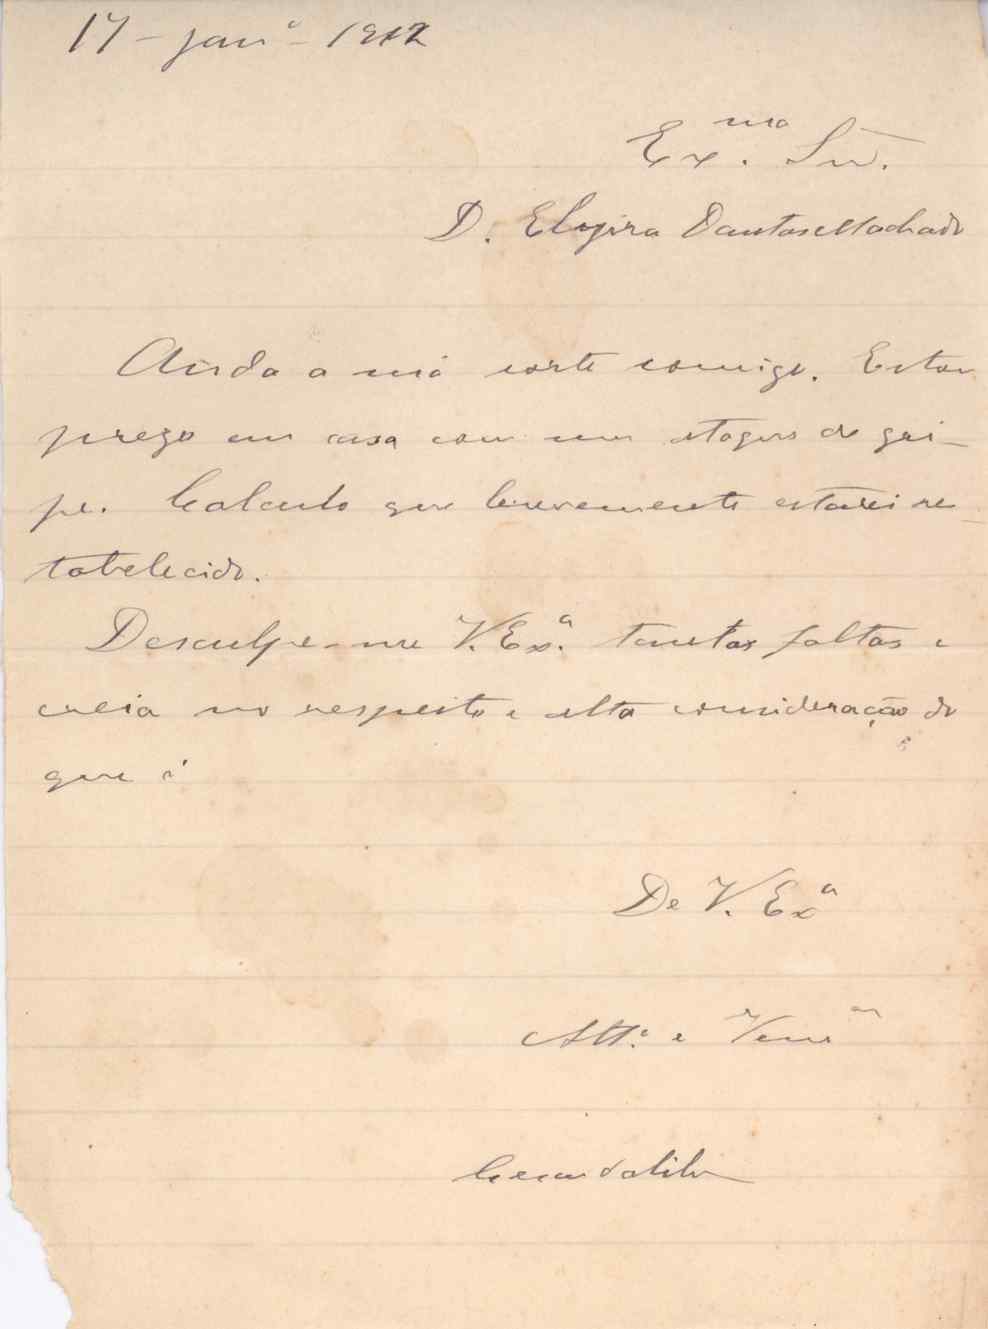 17 - janº - 1912
Exma. Snr.
D. Elzira Dantas Machado
Ainda a má sorte comigo. Estou
prezo em casa com um ataque de gri-
pe. Calculo que brevemente estarei res-
tabelecido.
Desculpe-me V. Exª. tantas faltas e
creia no respeito e alta consideração do
que é
De V. Exª
Attº. e Venor
Cesar da Silva